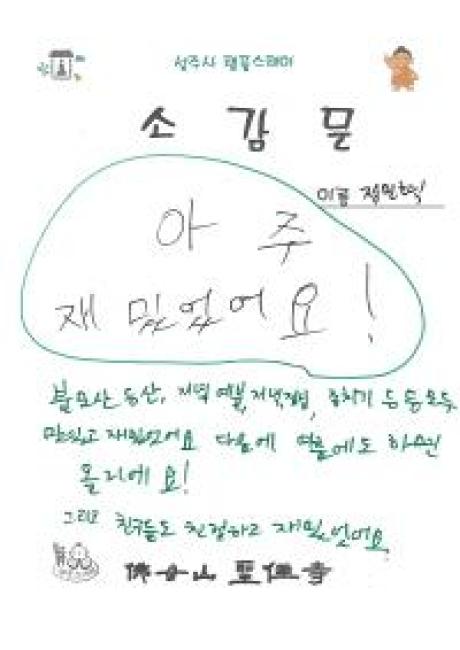 성주사 템플스테이
소 감 문
이름 정민혁
아 주
재 밌었어요!
불모산 등산, 저녁 예불, 저녁 공양, 등 등 모두
맛있고 재밌었어요 다음에 여름에도 하루만
올거에요!
그리고 친구들도 친절하고 재밌었어요
佛母山 聖住寺